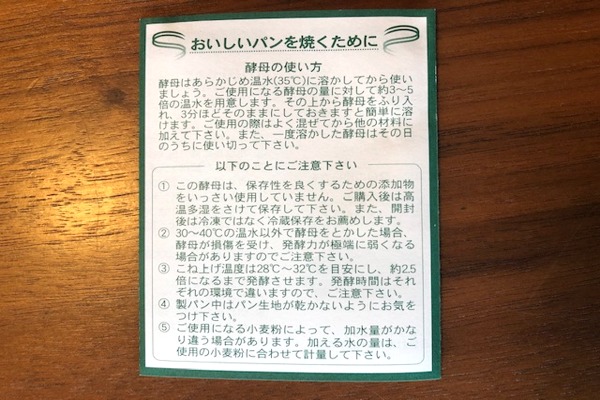 おいしいパンを焼くために
酵母の使い方
酵母はあらかじめ温水(35℃)に溶かしてから使い
ましょう。ご使用になる酵母の量に対して約3〜5
倍の温水を用意します。その上から酵母をふり入
れ、3分ほどそのままにしておきますと簡単に溶
けます。ご使用の際はよく混ぜてから他の材料に
加えて下さい。また、一度溶かした酵母はその日
のうちに使い切って下さい。
以下のことにご注意下さい
① この酵母は、保存性を良くするための添加物
をいっさい使用していません。ご購入後は高
温多湿をさけて保存して下さい。また、開封
後は冷凍ではなく冷蔵保存をお薦めします。
② 30〜40℃の温水以外で酵母をとかした場合、
酵母が損傷を受け、発酵力が極端に弱くなる
場合がありますのでご注意下さい。
③ こね上げ温度は28℃〜32℃を目安にし、約2.5
倍になるまで発酵させます。発酵時間はそれ
ぞれの環境で違いますので、ご注意下さい。
④ 製パン中はパン生地が乾かないようにお気を
つけ下さい。
⑤ ご使用になる小麦粉によって、加水量がかな
り違う場合があります。加える水の量は、ご
使用の小麦粉に合わせて計量して下さい。